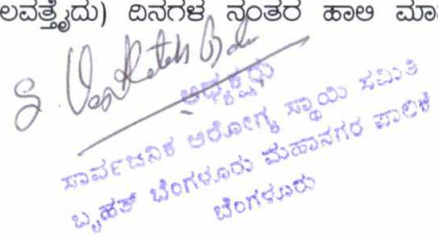 ಲವತ್ತೈದು) ದಿನಗಳ ನಂತರ ಹಾಲಿ ಮಾ
ಅಧ್ಯಕ್ಷರು
ಸಾರ್ವಜನಿಕ ಆರೋಗ್ಯ ಸ್ಥಾಯಿ ಸಮಿತಿ
ಬೃಹತ್ ಬೆಂಗಳೂರು ಮಹಾನಗರ ಪಾಲಿಕೆ
ಬೆಂಗಳೂರು